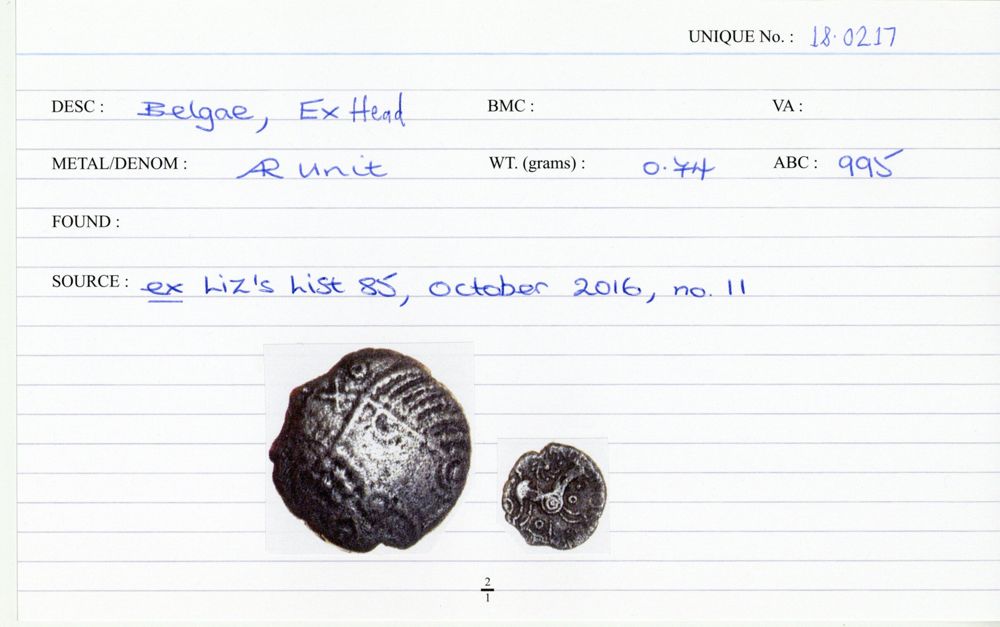 UNIQUE No. : 18.0217
DESC : Belgae, Ex Head BMC : VA :
METAL/DENOM : AR Unit WT. (grams) : 0.74 ABC : 995
FOUND :
SOURCE : ex Liz's List 85, October 2016, no. 11
2
1